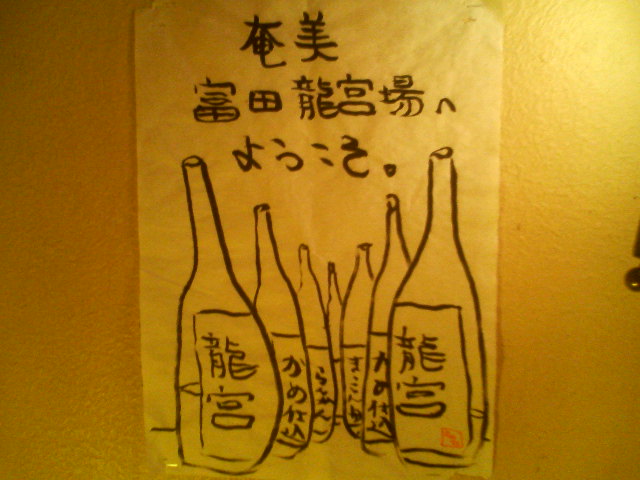 奄美
富田龍宮場へ
ようこそ。
龍宮
かめ仕込
らんかん
まーらん舟
かめ仕込
龍宮